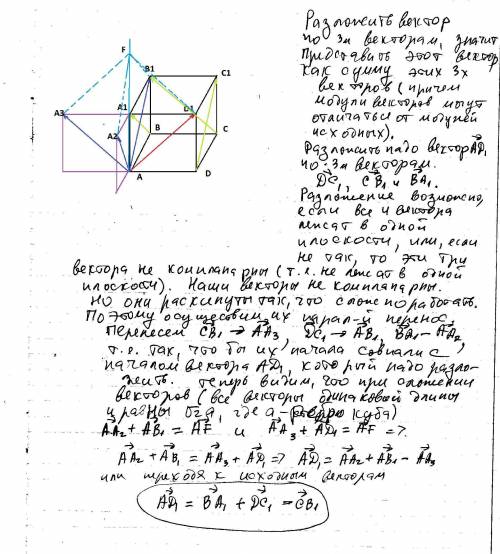 F
B1
C1
A3
A1
D1
A2
B
C
A
D
Разложить вектор
по 3м векторам, значит
представить этот вектор
как сумму этих 3х
векторов (причем
модули векторов могут
отличаться от модулей
исходных).
Разложить надо вектор AD₁
по 3м векторам.
DC₁, CB₁ и BA₁.
Разложение возможно,
если все 4 вектора
лежат в одной
плоскости, или, если
не так, то эти три
вектора не компланарны (т.е. не лежат в одной
плоскости). Наши векторы не компланарны.
Но они раскинуты так, что сложно работать.
Поэтому осуществим их парал-й перенос.
Перенесем CB₁ → AA₃ DC₁ → AB₁, BA₁ → AA₂,
т.е. так, что бы их начала совпали с
началом вектора AD₁, который надо разло-
жить. Теперь видим, что при сложении
векторов (все векторы одинаковой длины
и равны √2a, где a - ребро куба)
AA₂ + AB₁ = AF и AA₃ + AD₁ = AF =>
AA₂ + AB₁ = AA₃ + AD₁ => AD₁ = AA₂ + AB₁ - AA₃
или переходя к исходным векторам
AD₁ = BA₁ + DC₁ - CB₁